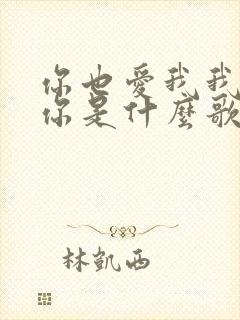 你也愛我我
你是什麼歌
林凱西